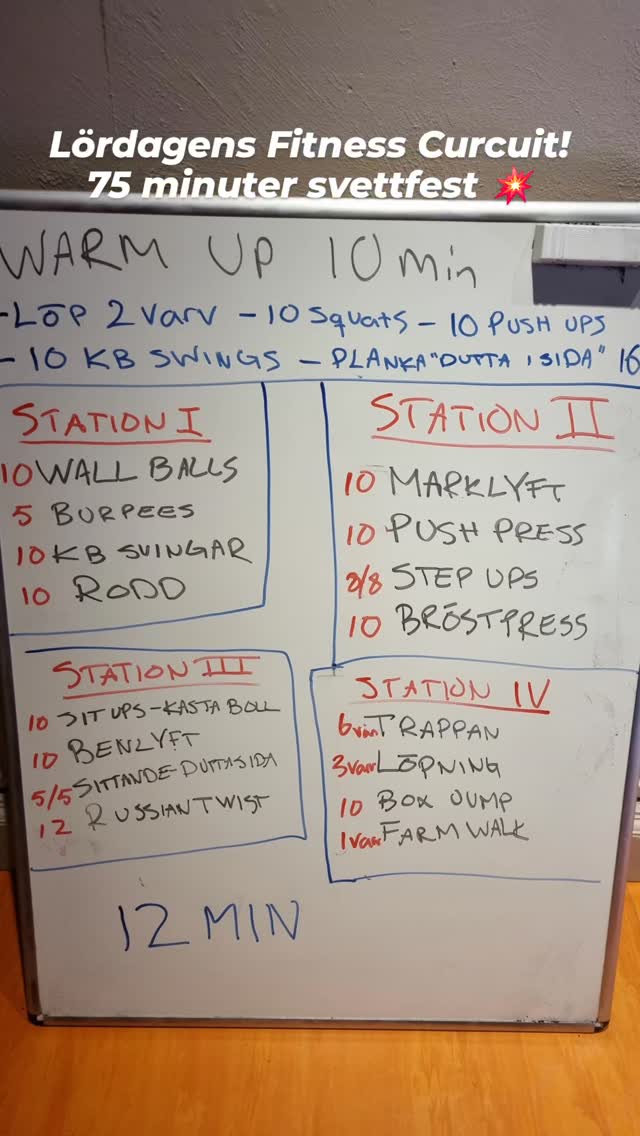 Lördagens Fitness Curcuit!
75 minuter svettfest 💥
WARM UP 10 min
-LÖP 2 varv - 10 squats - 10 PUSH UPS
- 10 KB SWINGS - PLANKA "DUTTA I SIDA" 16
STATION I
10 WALL BALLS
5 BURPEES
10 KB SVINGAR
10 RODD
STATION II
10 MARKLYFT
10 PUSH PRESS
8/8 STEP UPS
10 BRÖSTPRESS
STATION III
10 SIT UPS-KASTA BOLL
10 BENLYFT
5/5 SITTANDE-DUTTA SIDA
12 RUSSIAN TWIST
STATION IV
6 varv TRAPPAN
3 varv LÖPNING
10 BOX JUMP
1 varv FARM WALK
12 MIN